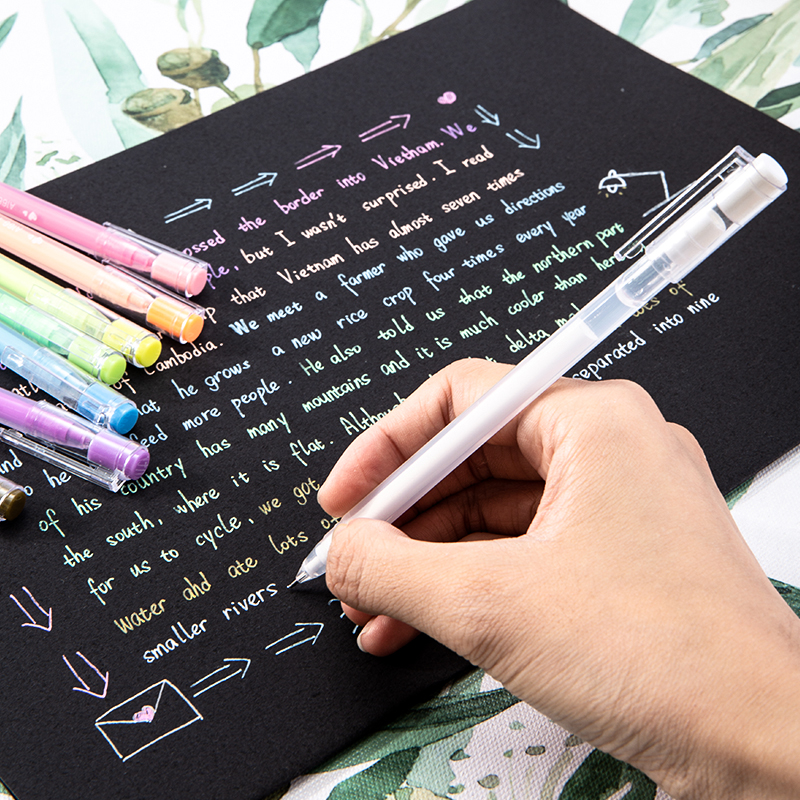 ossed the border into Vietnam. We
ple, but I wasn't surprised. I read
that Vietnam has almost seven times
of Cambodia. We meet a farmer who gave us directions
he grows a new rice crop four times every year
feed more people. He also told us that the northern part
of his country has many mountains and it is much cooler than her
the south, where it is flat. delta lots of
for us to cycle, we got separated into nine
water and ate lots of
smaller rivers